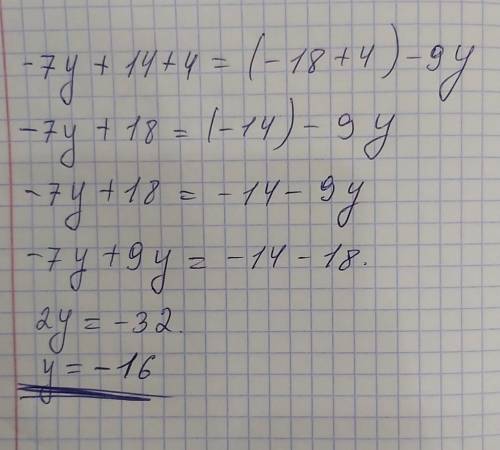 -7y + 14 + 4 = (-18 + 4) - 9y
-7y + 18 = (-14) - 9y
-7y + 18 = -14 - 9y
-7y + 9y = -14 - 18.
2y = -32.
y = -16